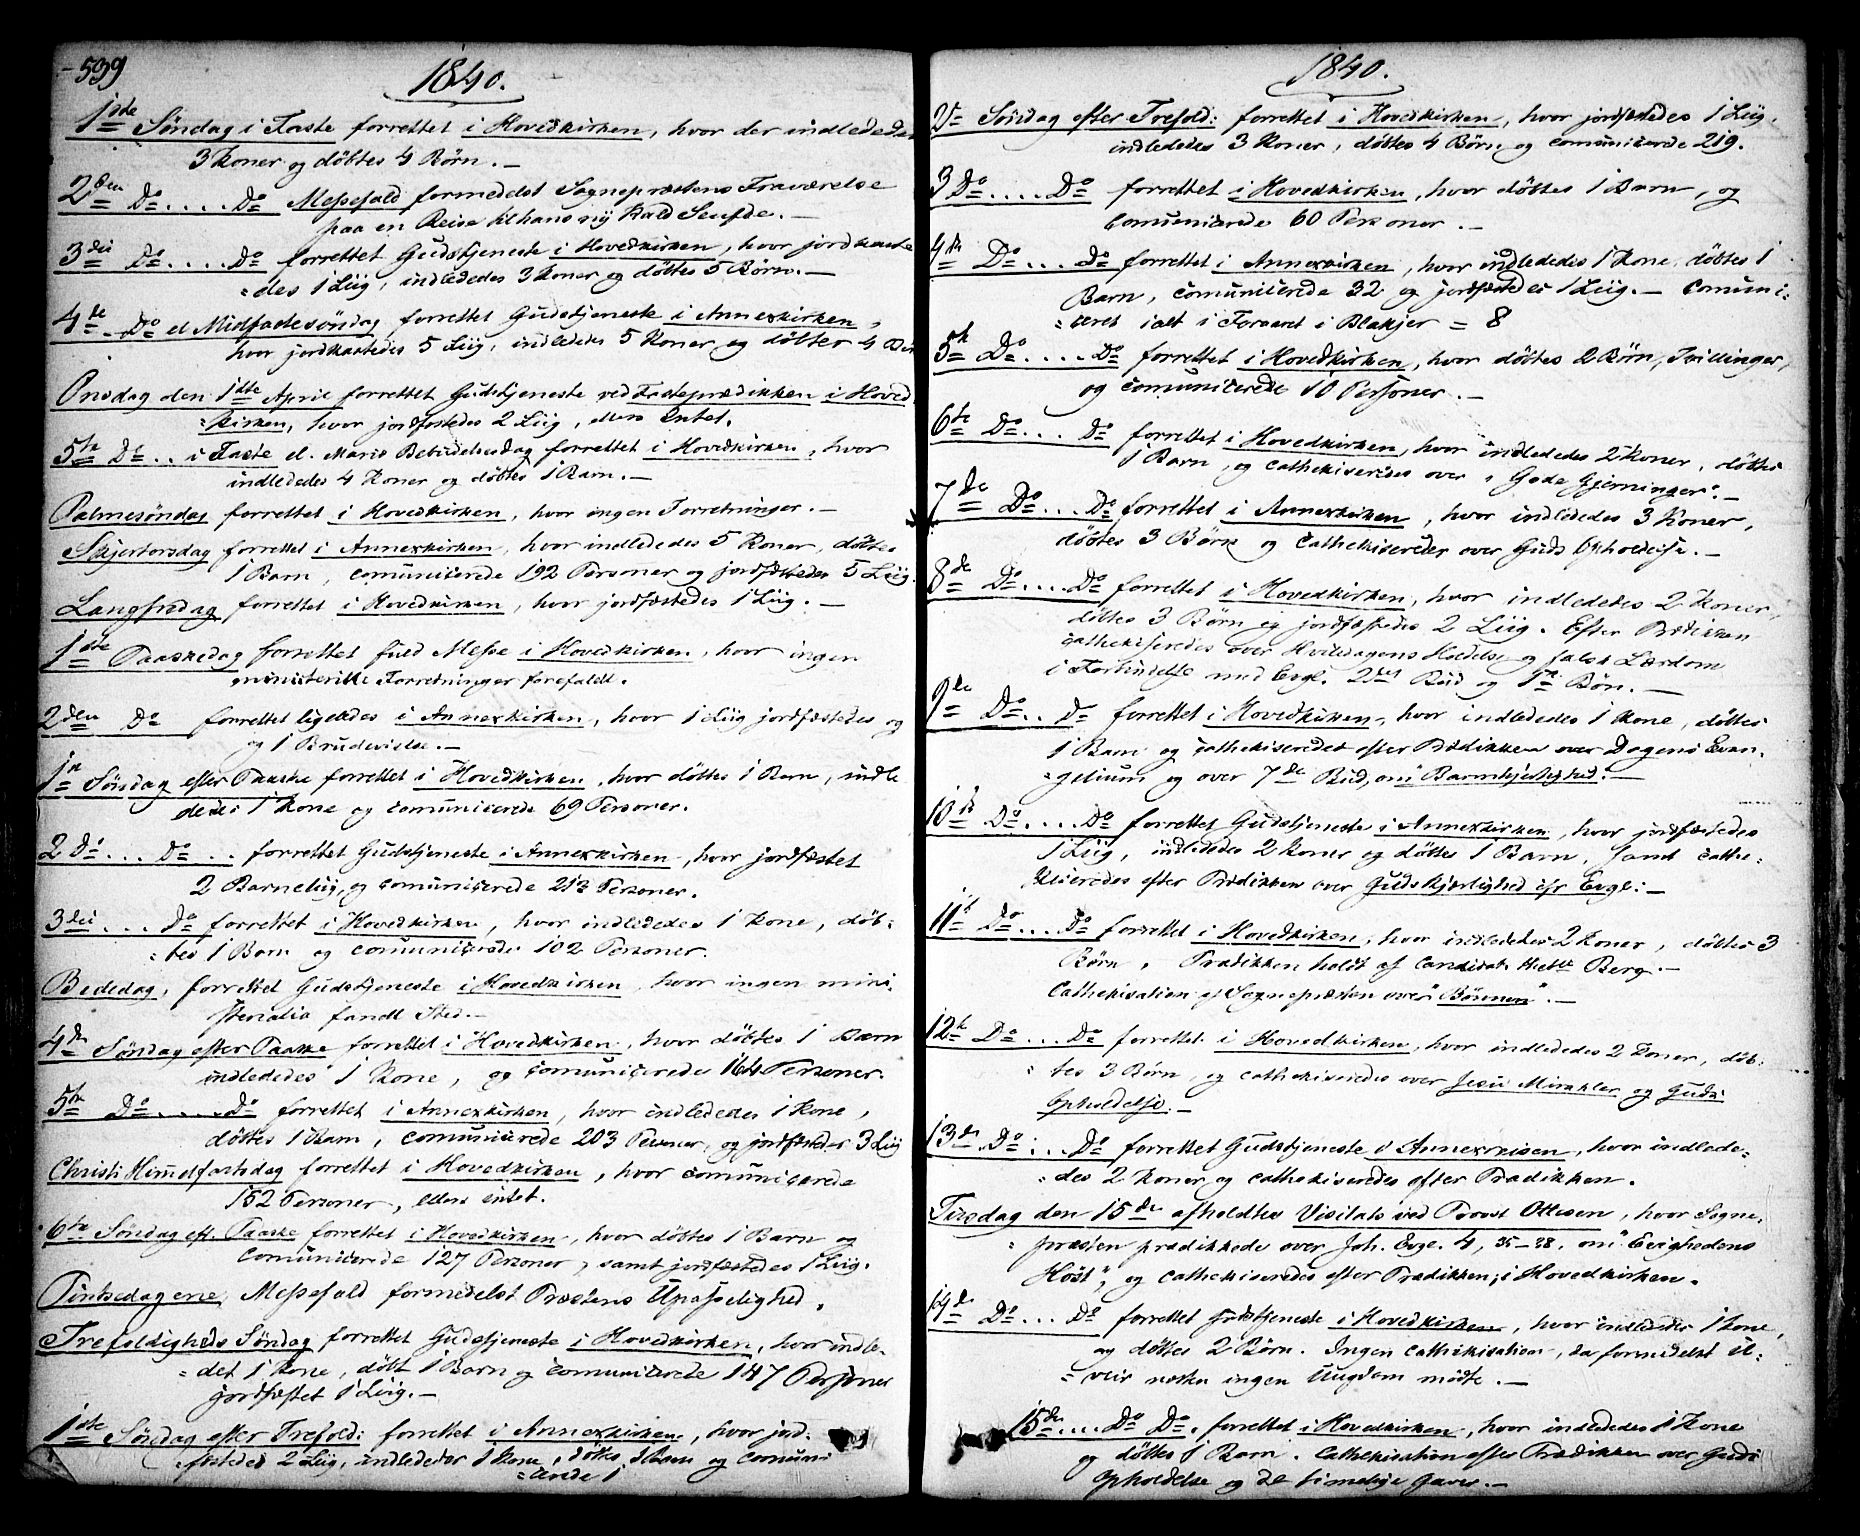 539
1840.
1ste Søndag i Faste forrettet i Hovedkirken, hvor der indlededes
3 Koner og døbtes 4 Børn. —
2den Do .... Do Messefald formedelst Sognepræstens Fraværelse
paa en Reise til hans ny Kald
3die Do .... Do forrettet Gudstjeneste i Hovedkirken, hvor jordkaste
=des 1 Liig, indlededes 3 Koner og døbtes 5 Børn. —
4de .. Do el Midfastesøndag forrettet Gudstjeneste i Annexkirken,
hvor jordkastedes 5 Liig, indlededes 5 Koner og døbtes 4
Onsdag den 1ste April forrettet Gudstjeneste ved Fasteprædikken i Hoved
=kirken, hvor jordfæstedes 2 Liig, ellers Intet.
5te Do .. i Faste el. Mariæ Bebudelsesdag forrettet i Hovedkirken, hvor
indlededes 4 Koner og døbtes 1 Barn. —
Palmesøndag forrettet i Hovedkirken, hvor ingen Forretninger. —
Skjertorsdag forrettet i Annexkirken, hvor indlededes 5 Koner, døbtes
1 Barn, comunicerede 192 Personer og jordfæstedes 5 Liig.
Langfredag forrettet i Hovedkirken, hvor jordfæstedes 1 Liig. —
1ste Paaskedag forrettet fuld Messe i Hovedkirken, hvor ingen
ministerielle Forretninger forefaldt.
2den Do forrettet ligeledes i Annexkirken, hvor 1 Liig jordfæstedes og
og 1 Brudevielse. —
1ste Søndag efter Paaske forrettet i Hovedkirken, hvor døbtes 1 Barn, indle
dedes 1 Kone og comunicerede 69 Personer.
2 Do ... Do .. forrettet Gudstjeneste i Annexkirken, hvor jordfæstet
2 Barneliig, og comunicerede 213 Personer.
3die ... Do forrettet i Hovedkirken, hvor indlededes 1 Kone, døb=
=tes 1 Barn og comunicerede 102 Personer.
Bededag, forrettet Gudstjeneste i Hovedkirken, hvor ingen mini
sterialia fandt Sted. —
4de Søndag efter Paaske forrettet i Hovedkirken, hvor døbtes 1 Barn
indlededes 1 Kone, og comunicerede 164 Personer.
5te Do .... Do forrettet i Annexkirken, hvor indlededes 1 Kone,
døbtes 1 Barn, comunicerede 203 Personer, og jordfæstedes 3 Liig
Christi Himmelfartsdag forrettet i Hovedkirken, hvor comunicerede
152 Personer, ellers intet.
6te Søndag eft. Paaske forrettet i Hovedkirken, hvor døbtes 1 Barn og
comunicerede 127 Personer, samt jordfæstedes 1 Liig.
Pintsedagene, Messefald formedelst Præstens Upasselighed.
Trefoldigheds Søndag forrettet Gudstjeneste i Hovedkirken, hvor indle=
=det 1 Kone, døbt 1 Barn og comunicerede 147 Personer
jordfæstet 1 Liig. —
1ste Søndag efter Trefold: forrettet i Annexkirken, hvor jord=
fæstedes 2 Liig, indlededes 1 Kone, døbtes 1 Barn og comuni
=cerede 1
1840.
2de Søndag efter Trefold: forrettet i Hovedkirken, hvor jordfæstedes 1 Liig,
indlededes 3 Koner, døbtes 4 Børn og comunicerede 219.
3 Do .... Do forrettet i Hovedkirken, hvor døbtes 1 Barn, og
comunicerede 60 Personer. —
4de Do ... Do forrettet i Annexkirken, hvor indlededes 1 Kone, døbtes 1
Barn, comunicerede 32 og jordfæstedes 1 Liig. — Comuni=
=ceret ialt i Foraaret i Blakjer = 8
5te Do .... Do forrettet i Hovedkirken, hvor døbtes 2 Børn, Tvillinger,
og comunicerede 10 Personer. —
6te Do ... Do forrettet i Hovedkirken, hvor indlededes 2 Koner, døbtes
1 Barn, og cathekiseredes over „Gode Gjerninger". —
7de Do ... Do forrettet i Annexkirken, hvor indlededes 3 Koner,
døbtes 3 Børn og cathekiseredes over Guds Opholdelse. —
8de Do .... Do forrettet i Hovedkirken, hvor indlededes 2 Koner,
døbtes 3 Børn og jordfæstedes 2 Liig. Efter Prædikken
cathekiseredes over Hviledagens Holdelse og falsk Lærdom
i Forbindelse med Evgl. 2det Bud og 1ste Bøn. —
9de Do .. Do forrettet i Hovedkirken, hvor indlededes 1 Kone, døbtes
1 Barn og cathekiseredes efter Prædikken over Dagens Evan=
=gelium og over 7de Bud, om Barmhjertighed. —
10de Do .... Do forrettet Gudstjeneste i Annexkirken, hvor jordfæstedes
1 Liig, indlededes 2 Koner og døbtes 1 Barn, samt cathe=
kiseredes efter Prædikken over Guds Kjærlighed efr Evgl: —
11te Do ... Do forrettet i Hovedkirken, hvor indlededes 2 Koner, døbtes 3
Børn. Prædikken holdt af Candidat Berg. —
Cathekisation af Sognepræsten over "Bønnen". —
12te Do ... Do forrettet i Hovedkirken, hvor indlededes 2 Koner, døb=
=tes 3 Børn og cathekiseredes over Jesu Mirakler og Guds
Opholdelse. —
13de Do .. Do forrettet Gudstjeneste i Annexreisen, hvor indlede=
=des 2 Koner og cathekiseredes efter Prædikken.
Tirsdag den 15de afholdtes Visitats ved Provst Ottesen, hvor Sogne=
=præsten prædikkede over Joh. Evgl. 4, 35-38. om "Evighedens
Høst", og cathekiseredes efter Prædikken, i Hovedkirken.
14de Do ... Do forrettet Gudstjeneste i Hovedkirken, hvor indlededes 1 Kone,
og døbtes 2 Børn. Ingen Cathekisation, da formedelst U=
=veir næsten ingen Ungdom mødte. —
15de ... Do Do. forrettet i Hovedkirken, hvor indlededes 1 Kone
og døbtes 1 Barn. Cathekisation efter Prædikken over Guds
Opholdelse og de timelige Gaver. —